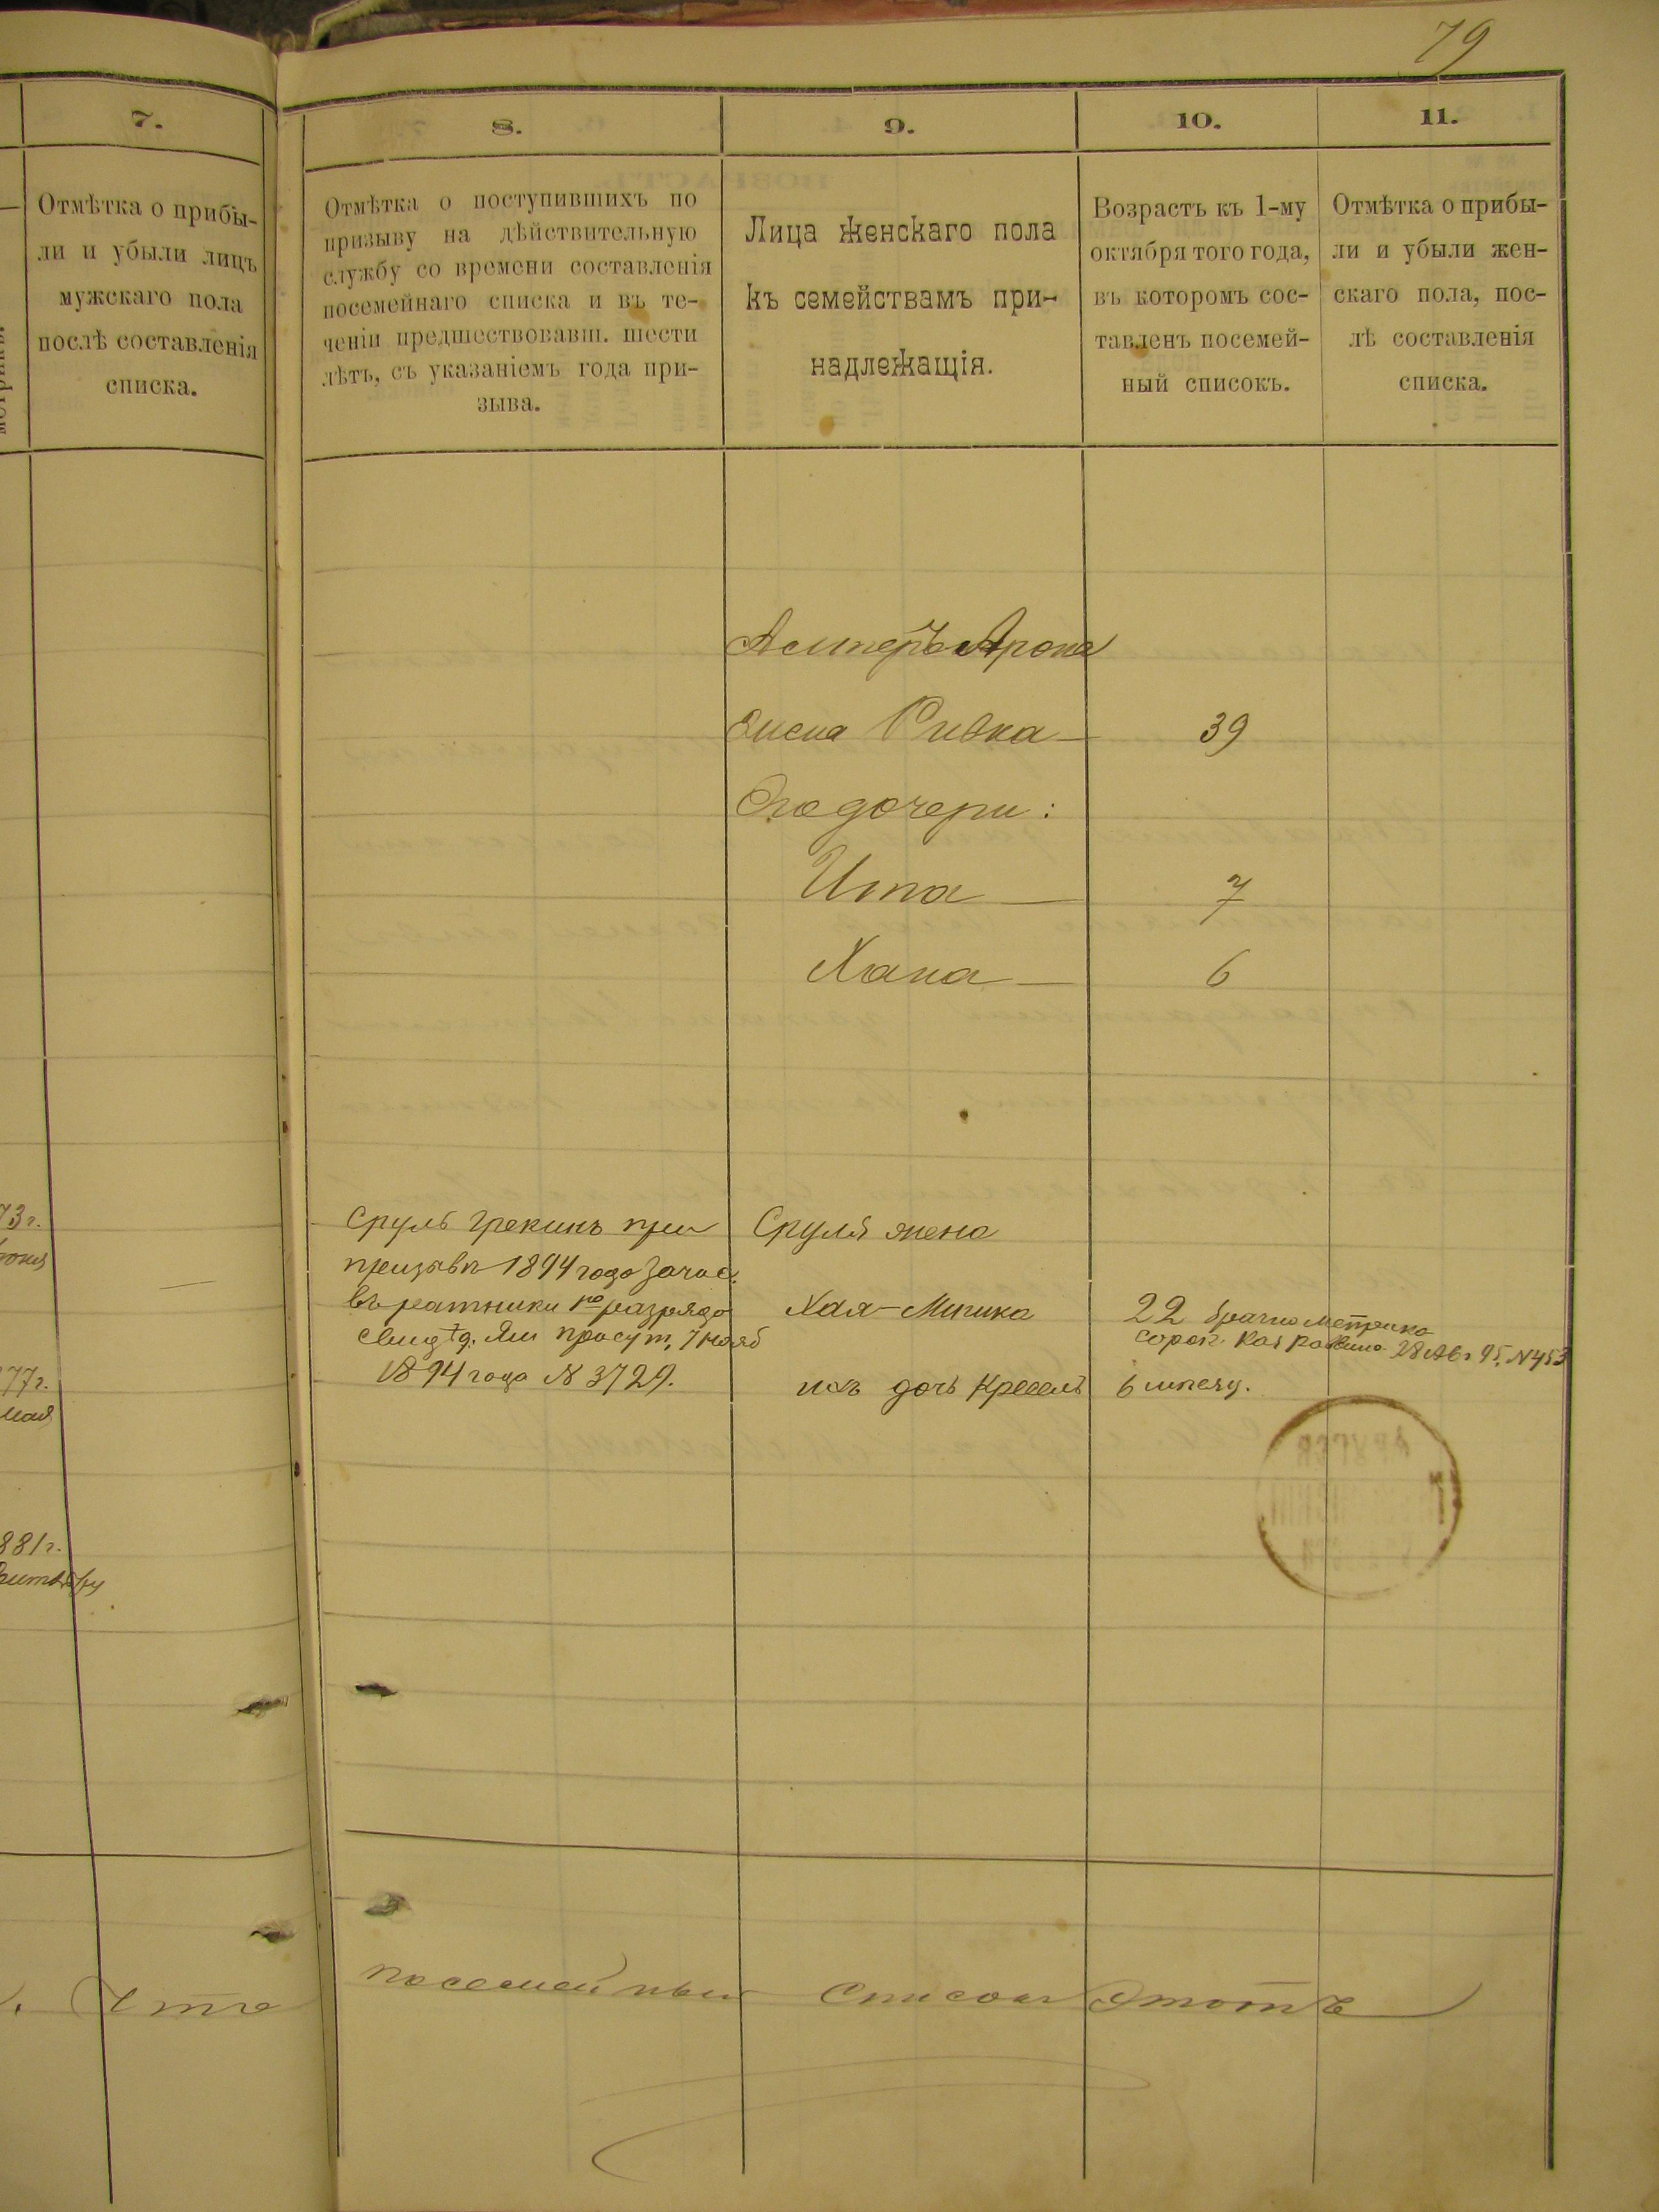 79
7.
8.
9.
10.
11.
Отмѣтка о прибы-
ли и убыли лицъ
мужскаго пола
послѣ составленія
списка.
Отмѣтка о поступившихъ по
призыву на дѣйствительную
службу со времени составленія
посемейнаго списка и въ те-
ченіи предшествовавш. шести
лѣтъ, съ указаніемъ года при-
зыва.
Лица женскаго пола
къ семействамъ при-
надлежащія.
Возрастъ къ 1-му
октября того года,
въ которомъ сос-
тавленъ посемей-
ный списокъ.
Отмѣтка о прибы-
ли и убыли жен-
скаго пола, пос-
лѣ составленія
списка.
Арона
жена Ривка — 39
Его дочери:
Ита — 7
Хана — 6
73 г.
77 г.
мая
881 г.
Сруль Грекинъ при
призывѣ 1894 года зачис.
въ ратники 1го разряда
свид. Ям присут, 7 нояб
1894 года № 3729.
Сруля жена
Хая-Миника 22
брачно метрика
сорок каз равина 28 Авг 95. N 453
ихъ дочь Крейслъ 6 мѣсяц.
Что
посемейный списокъ этотъ